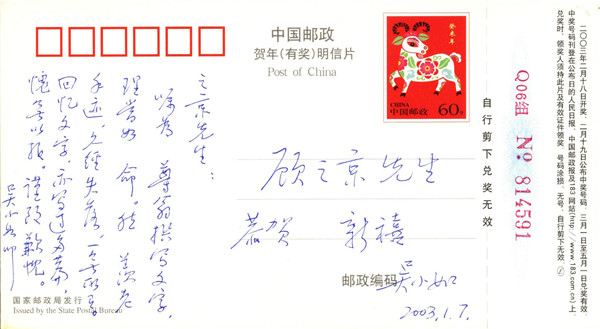 中国邮政
贺年(有奖)明信片
Post of China
癸未年
CHINA
中国邮政 60分
之京先生：
嘱为 尊翁撰写文字，
理当如命。然 羡老
手迹，久经失落，一无所有。
回忆文字，亦写过多篇，
愧无以报。谨致歉忱。
吴小如叩
顾之京先生
恭贺 新禧
吴小如
2003.1.7.
邮政编码
国家邮政局发行
Issued by the State Postal Bureau
自行剪下兑奖无效
Q06组 No 814591
二〇〇三年二月十八日开奖，二月十九日公布中奖号码，三月一日至五月一日兑奖有效
中奖号码刊登在公布日的人民日报、中国邮政报及183网站(http://www.183.com.cn)上
兑奖时，领奖人须持此片及有效证件领奖，号码涂损、无号、自行剪下无效。